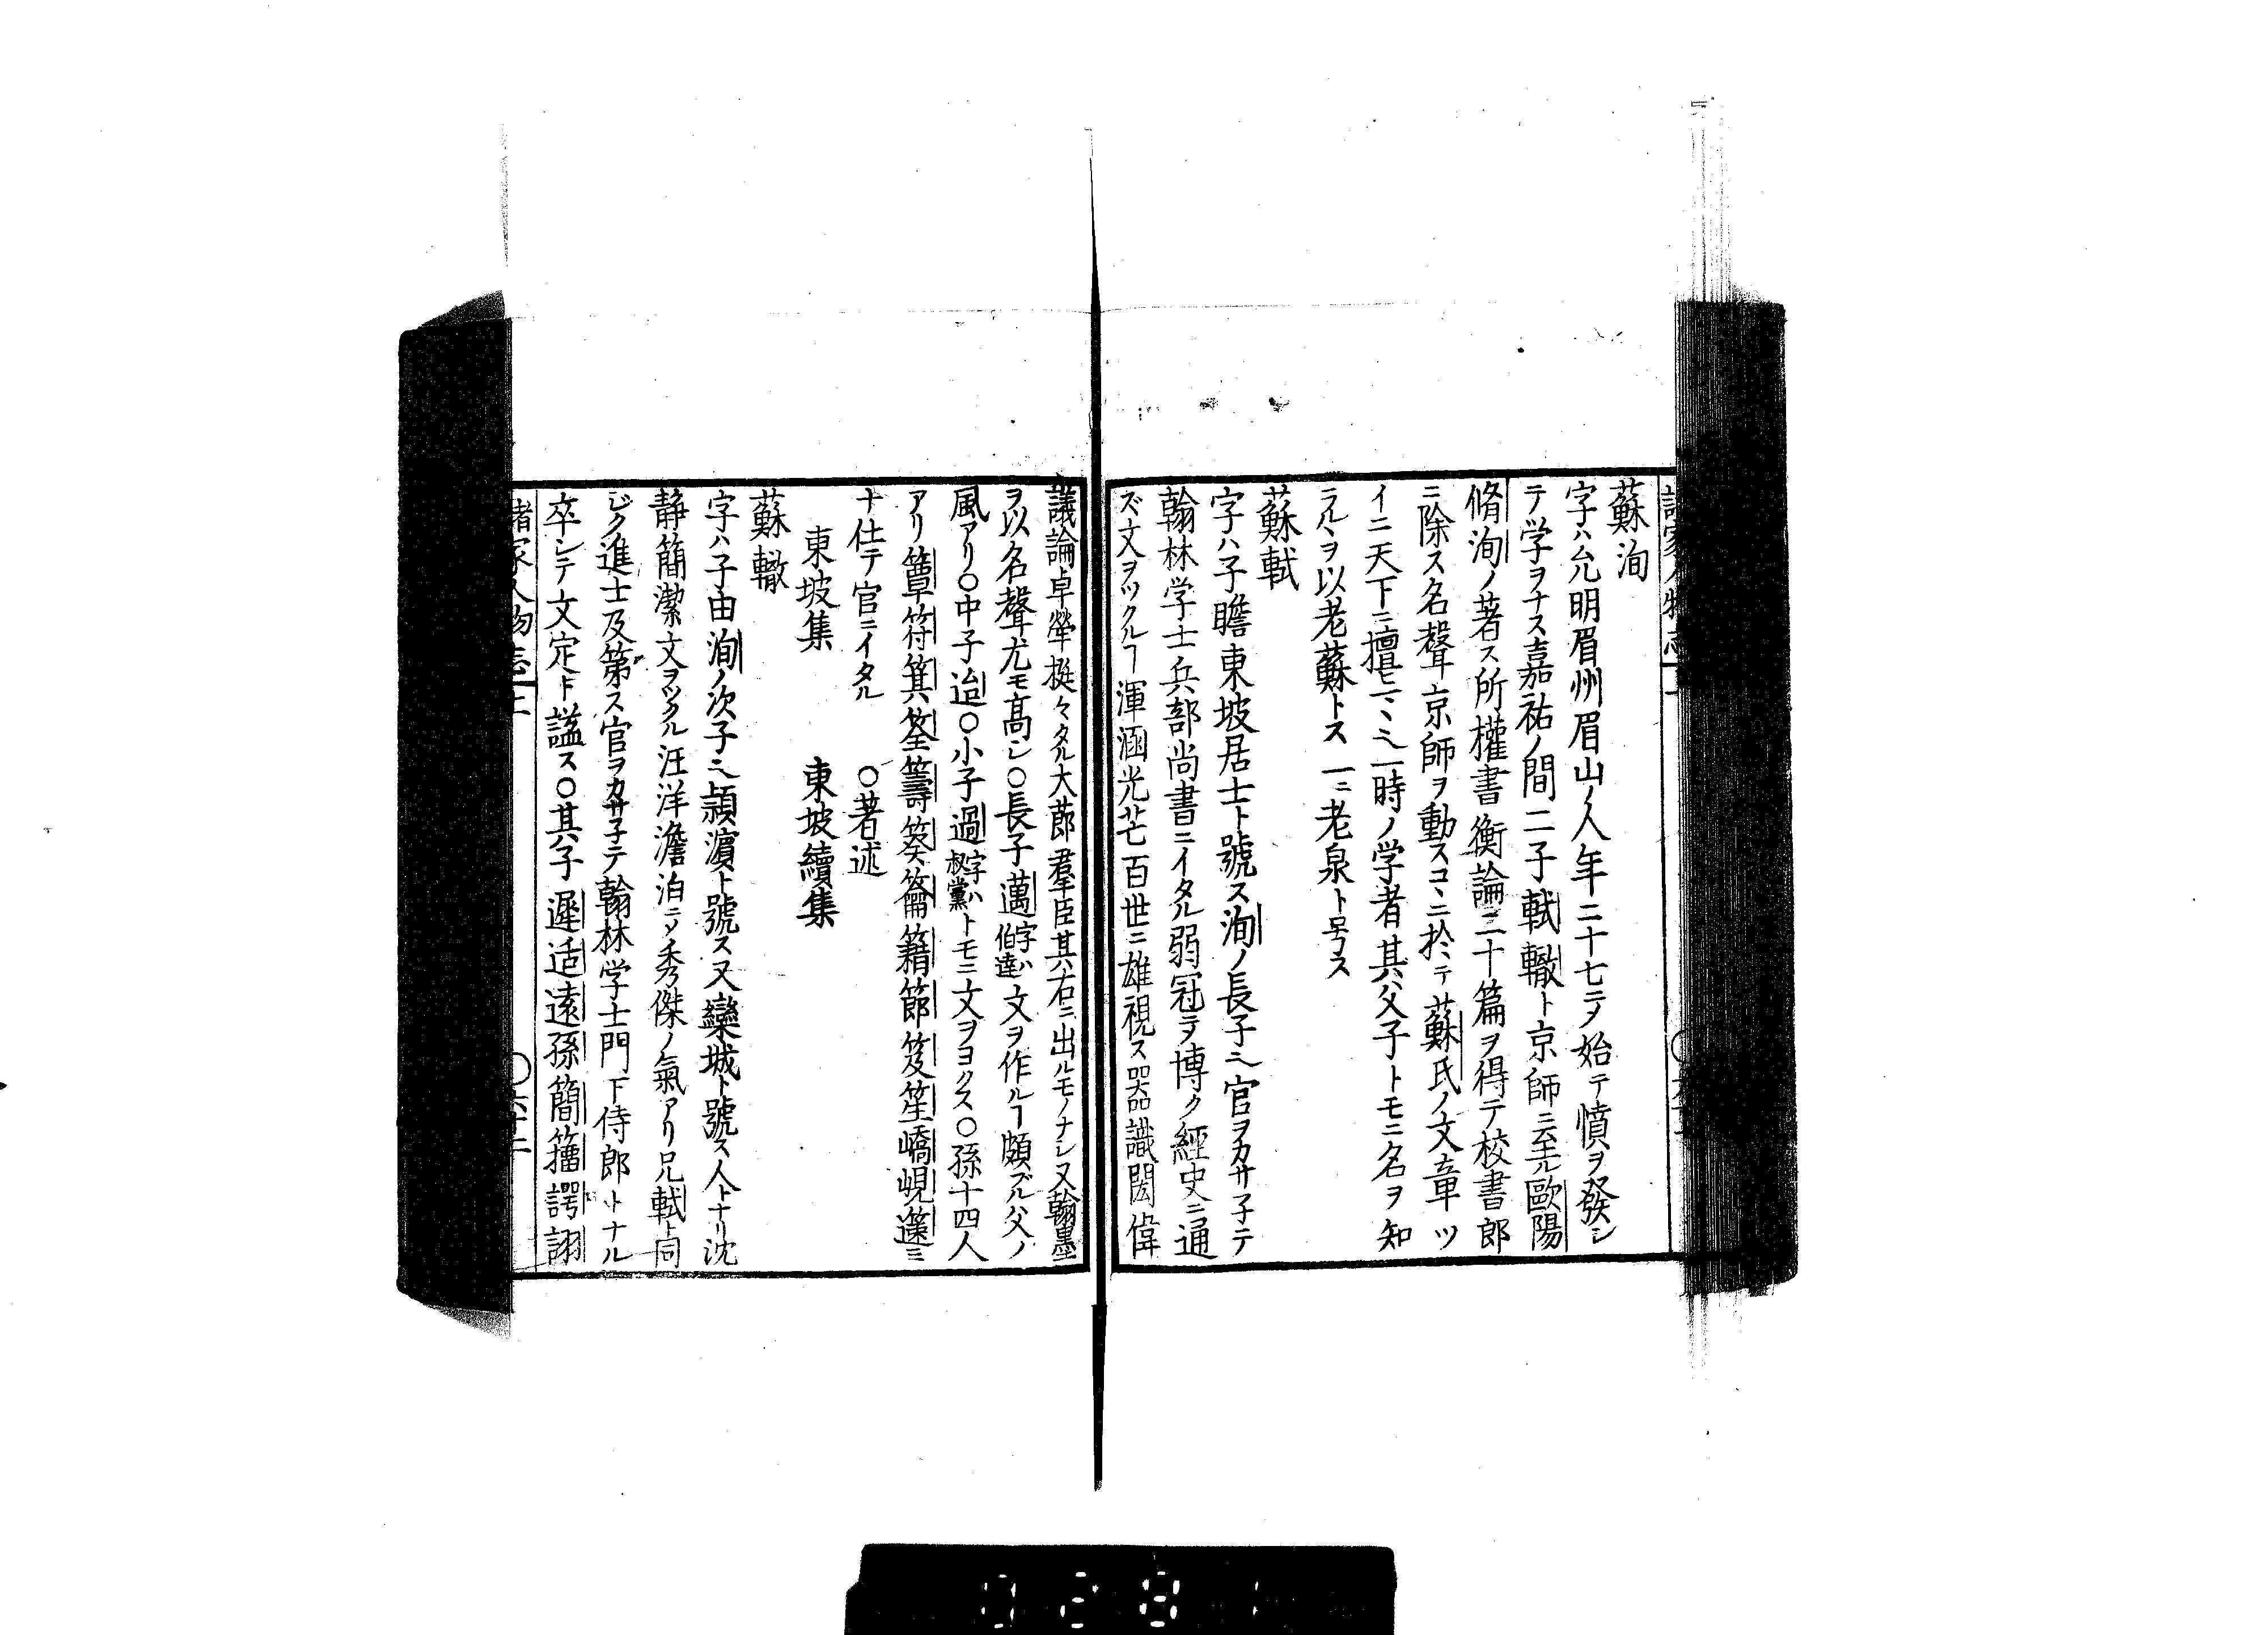 蘇洵
字ハ允明眉州眉山ノ人年二十七ニメ始テ憤ヲ發シ
テ学ヲナス嘉祐ノ間二子軾轍ト京師ニ至ル歐陽
脩洵ノ著ス所權書衡論二十篇ヲ得テ校書郎
ニ除ス名聲京師ヲ動スコヽニ於テ蘇氏ノ文章ツ
イニ天下ニ擅
一時ノ学者其父子トモニ名ヲ知
ラルヽヲ以老蘇トス一ニ老泉ト号ス
蘇軾
字ハ子瞻東坡居士ト號ス洵ノ長子也官ヲカサ子テ
翰林学士兵部尚書ニイタル弱冠ニメ博ク經史ニ通
ズ文ヲツクルヿ渾涵光芒百世ニ雄視ス器識閎偉
議論卓犖挺々タル大莭羣臣其右ニ出ルモノナシ又翰墨
ヲ以名聲尤モ髙シ〇長子邁字ハ伯達文ヲ作ルヿ頗ズル父ノ
風アリ〇中子迨〇小子過字ハ叔黨トモニ文ヲヨクス〇孫十四人
アリ簟符箕筌籌葵籥籍節笈笙嶠峴籧ミ
ナ仕テ官ニイタル　〇著述
東坡集　東坡續集
蘇轍
字ハ子由洵ノ次子也潁濵ト號ス又欒城ト號ス人トナリ沈
静簡潔文ヲツクル汪洋澹泊ニメ秀傑ノ氣アリ兄軾ト同
ジク進士及第ス官ヲカサ子テ翰林学士門下侍郎トナル
卒シテ文定ト謚ス〇其子遲适遠孫簡籀諤詡
諸家人物志